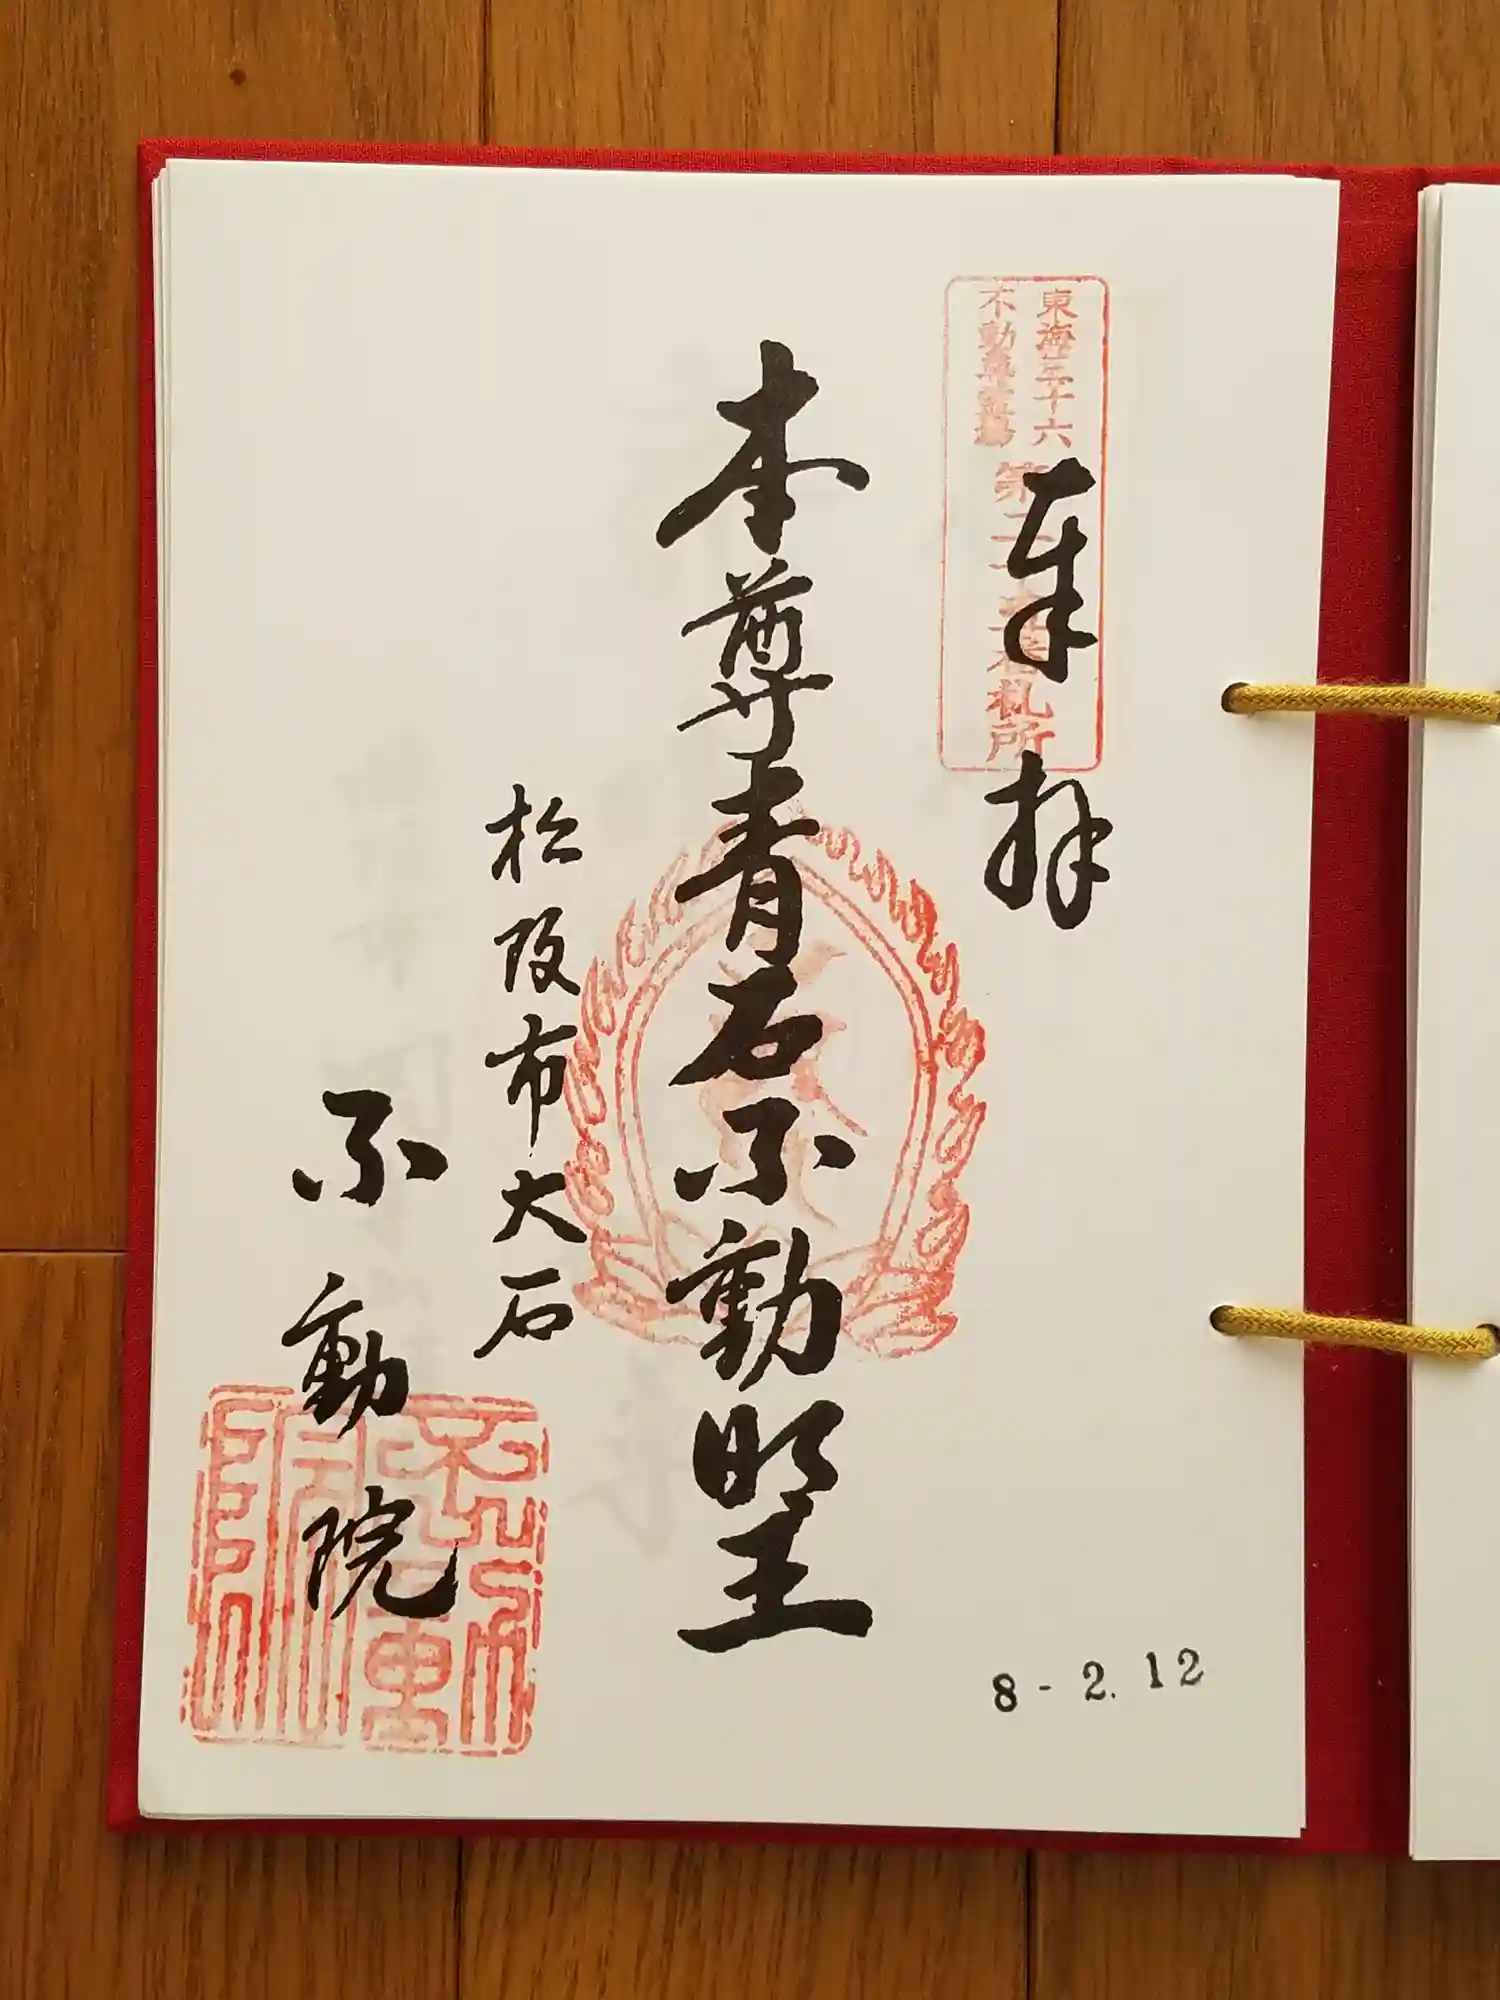 東海三十六
不動尊霊場
第二十五番札所
奉拝
本尊青石不動明王
松阪市大石
不動院
不動院
8-2.12